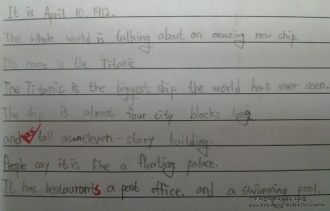 It is April 10, 1912.
The whole world is talking about an amazing new ship.
Its name is the Titanic
The Titanic is the biggest ship the world has ever seen.
The ship is almost four city blocks long
and tall as an eleven-story building.
People say it is like a floating palace.
It has restaurants a post office, and a swimming pool.